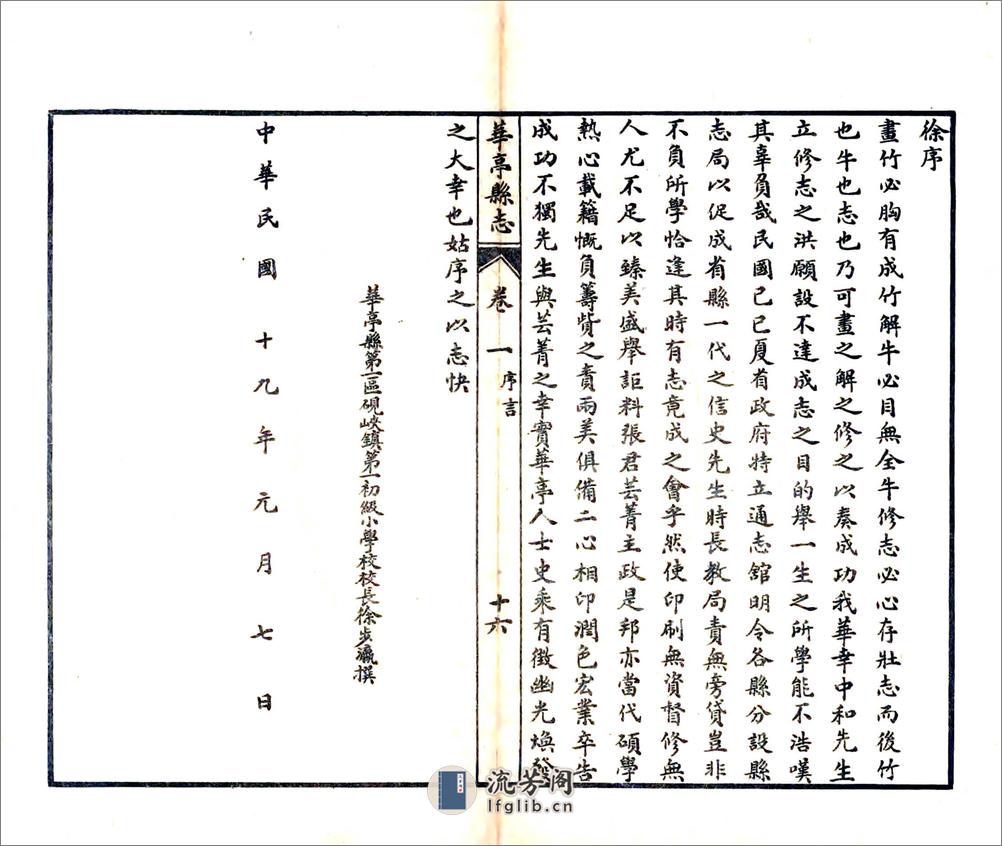 徐序
畫竹必胸有成竹解牛必目無全牛修志必心存壯志而後竹
也牛也志也乃可畫之解之修之以奏成功我華幸中和先生
立修志之洪願設不達成志之目的舉一生之所學能不浩嘆
其辜負哉民國己巳夏省政府特立通志舘明令各縣分設縣
志局以促成省縣一代之信史先生時長教局責無旁貸豈非
不負所學恰逢其時有志竟成之會乎然使印刷無資督修無
人尤不足以臻美盛舉詎料張君芸菁主政是邦亦當代碩學
熱心載籍慨負籌貲之責兩美俱備二心相印潤色宏業卒告
成功不獨先生與芸菁之幸實華亭人士史乘有徵幽光煥發
華亭縣志
卷一
序言
十六
之大幸也姑序之以志快
華亭縣第一區硯峽鎮第一初級小學校校長徐步瀛撰
中華民國十九年元月七日
流芳阁
lfglib.cn